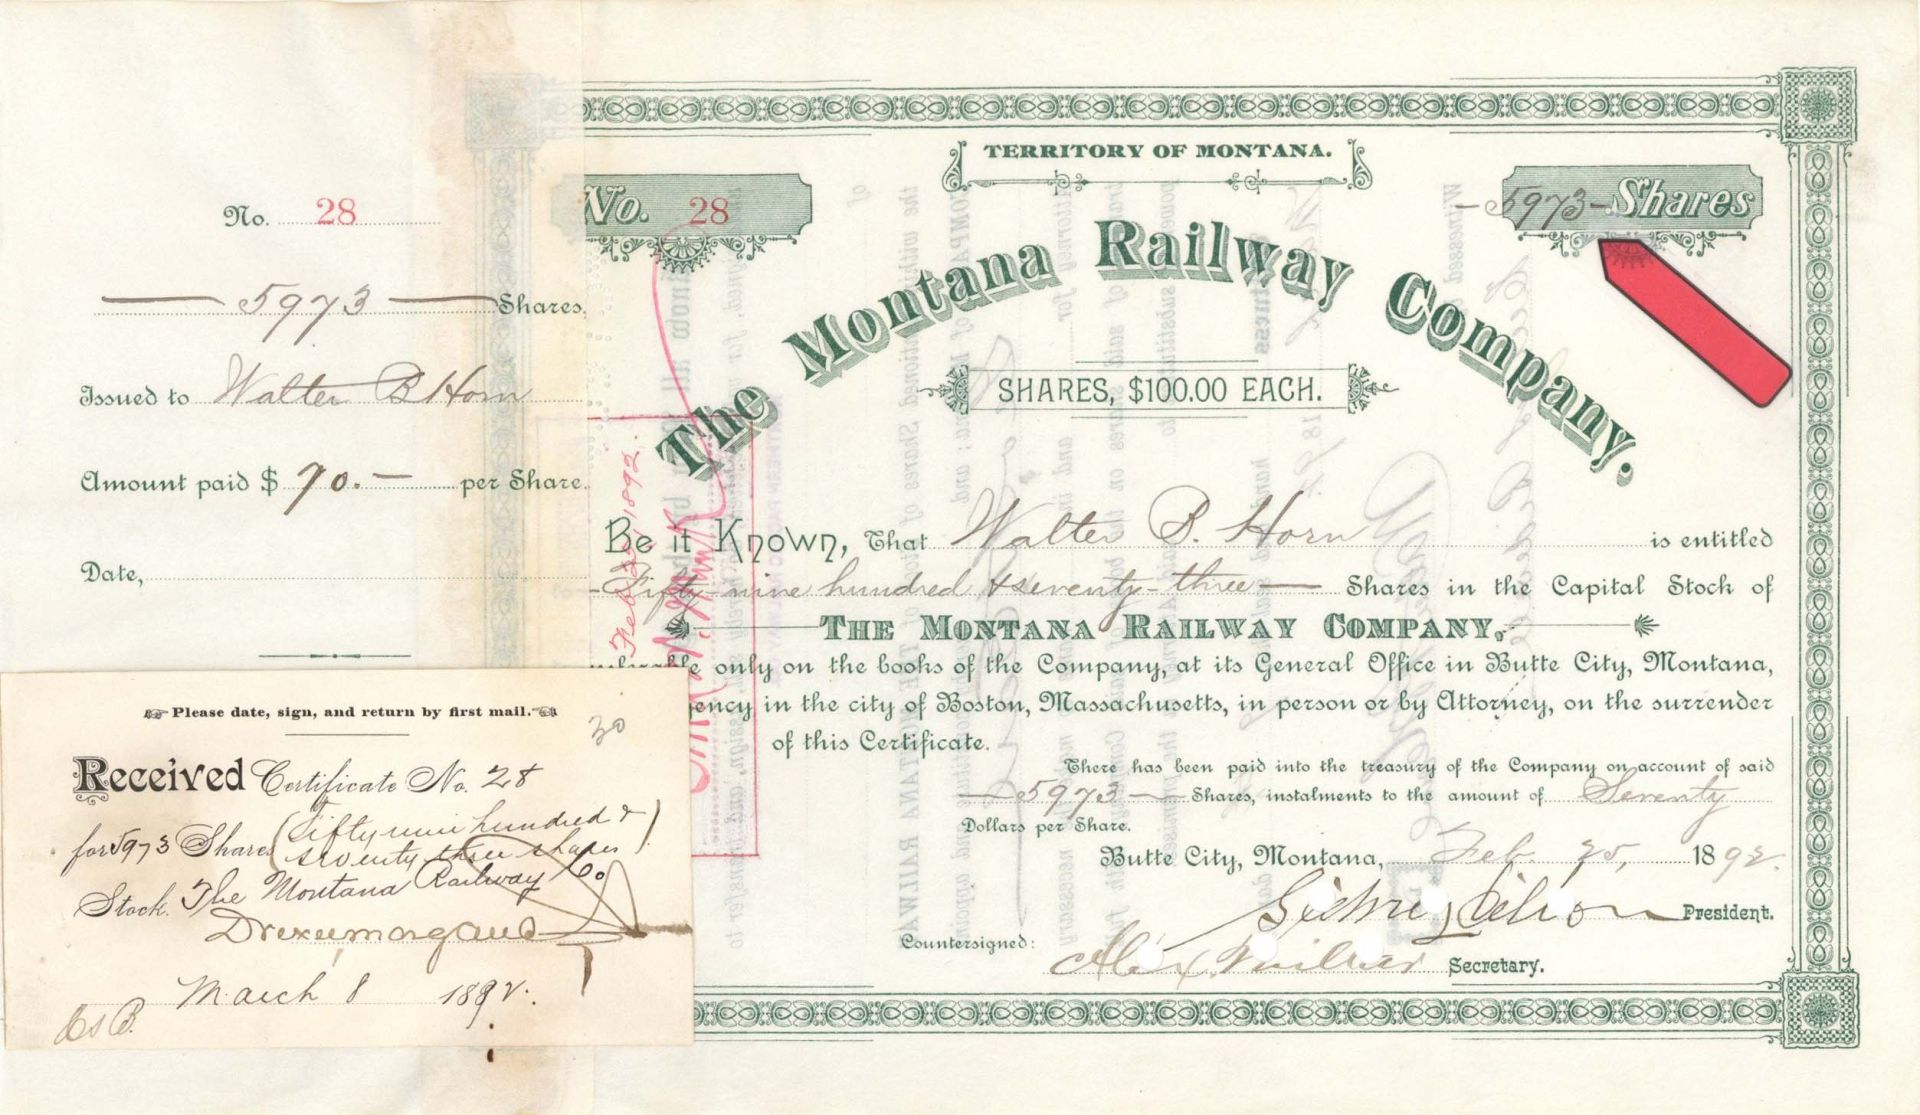 No. 28
5973 Shares.
Issued to Walter B Horn
Amount paid $ 70.— per Share.
Date,
TERRITORY OF MONTANA.
No. 28
—5973— Shares
The Montana Railway Company,
SHARES, $100.00 EACH.
Be it Known, That Walter B. Horn is entitled
Fifty nine hundred & seventy-three— Shares in the Capital Stock of
THE MONTANA RAILWAY COMPANY,
only on the books of the Company, at its General Office in Butte City, Montana,
in the city of Boston, Massachusetts, in person or by Attorney, on the surrender
of this Certificate.
There has been paid into the treasury of the Company on account of said
—5973— Shares, instalments to the amount of Seventy
Dollars per Share.
Butte City, Montana, Feb. 25, 1892
President.
Countersigned:
Secretary.
Feb 25, 1892.
Please date, sign, and return by first mail.
30
Received Certificate No. 28
for 5973 Shares (fifty nine hundred &
seventy three shares)
Stock. The Montana Railway Co
March 8 1892.